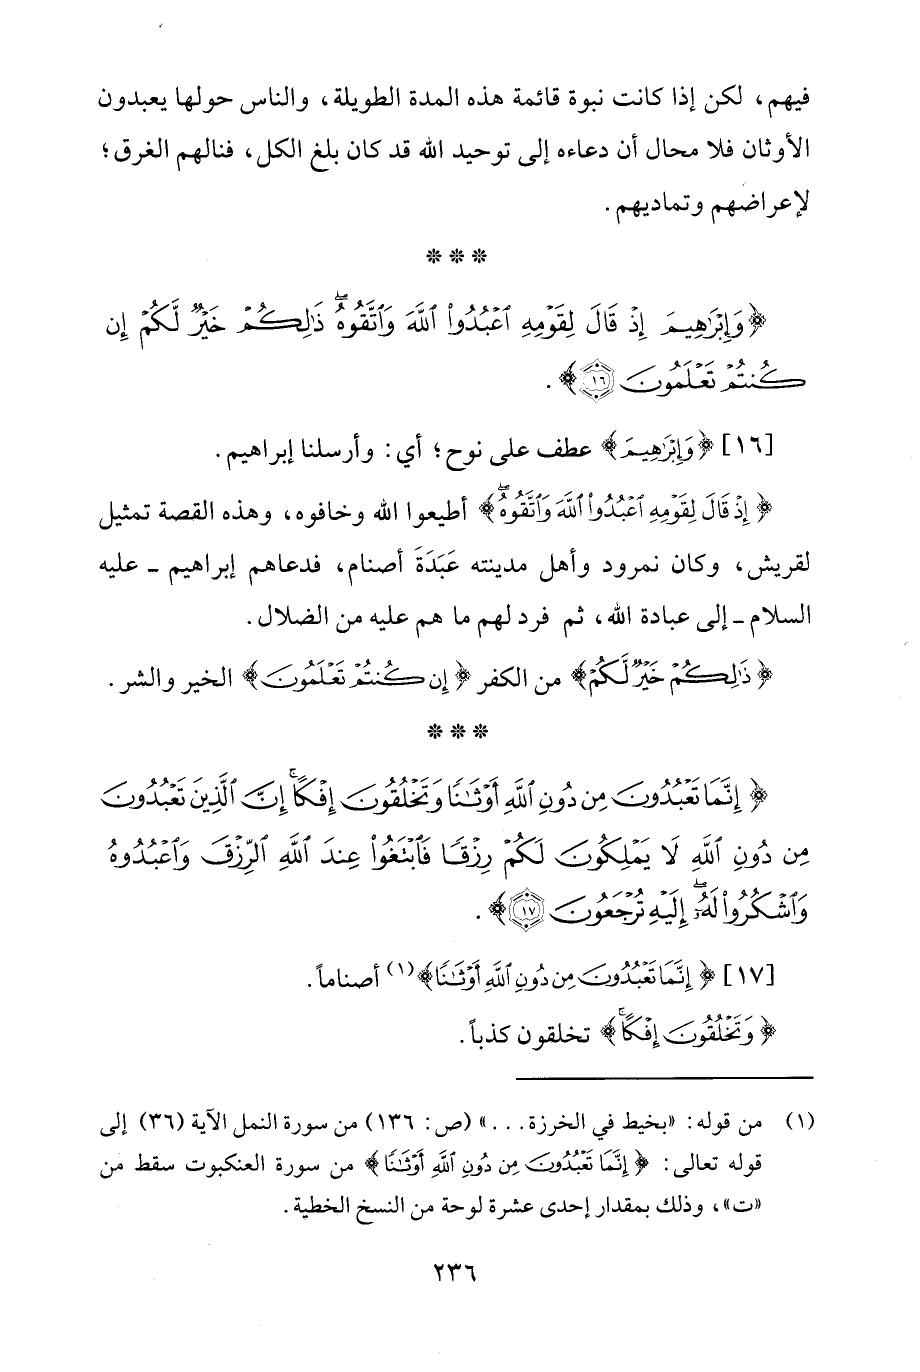 فيهم، لكن إذا كانت نبوة قائمة هذه المدة الطويلة، والناس حولها يعبدون
الأوثان فلا محال أن دعاءه إلى توحيد الله قد كان بلغ الكل، فنالهم الغرق؛
لإعراضهم وتماديهم.
***
﴿وَإِبْرَٰهِيمَ إِذْ قَالَ لِقَوْمِهِ ٱعْبُدُوا۟ ٱللَّهَ وَٱتَّقُوهُ ۖ ذَٰلِكُمْ خَيْرٌ لَّكُمْ إِن
كُنتُمْ تَعْلَمُونَ ١٦﴾.
[١٦] ﴿وَإِبْرَٰهِيمَ﴾ عطف على نوح؛ أي: وأرسلنا إبراهيم.
﴿إِذْ قَالَ لِقَوْمِهِ ٱعْبُدُوا۟ ٱللَّهَ وَٱتَّقُوهُ ۖ﴾ أطيعوا الله وخافوه، وهذه القصة تمثيل
لقريش، وكان نمرود وأهل مدينته عَبَدَةَ أصنام، فدعاهم إبراهيم ـ عليه
السلام ـ إلى عبادة الله، ثم فرد لهم ما هم عليه من الضلال.
﴿ذَٰلِكُمْ خَيْرٌ لَّكُمْ﴾ من الكفر ﴿إِن كُنتُمْ تَعْلَمُونَ﴾ الخير والشر.
***
﴿إِنَّمَا تَعْبُدُونَ مِن دُونِ ٱللَّهِ أَوْثَٰنًا وَتَخْلُقُونَ إِفْكًا ۚ إِنَّ ٱلَّذِينَ تَعْبُدُونَ
مِن دُونِ ٱللَّهِ لَا يَمْلِكُونَ لَكُمْ رِزْقًا فَٱبْتَغُوا۟ عِندَ ٱللَّهِ ٱلرِّزْقَ وَٱعْبُدُوهُ
وَٱشْكُرُوا۟ لَهُۥٓ ۖ إِلَيْهِ تُرْجَعُونَ ١٧﴾.
[١٧] ﴿إِنَّمَا تَعْبُدُونَ مِن دُونِ ٱللَّهِ أَوْثَٰنًا﴾(١) أصناماً.
﴿وَتَخْلُقُونَ إِفْكًا ۚ﴾ تخلقون كذباً.
(١) من قوله: «بخيط في الخرزة...» (ص: ١٣٦) من سورة النمل الآية (٣٦) إلى
قوله تعالى: ﴿إِنَّمَا تَعْبُدُونَ مِن دُونِ ٱللَّهِ أَوْثَٰنًا﴾ من سورة العنكبوت سقط من
«ت»، وذلك بمقدار إحدى عشرة لوحة من النسخ الخطية.
٢٣٦